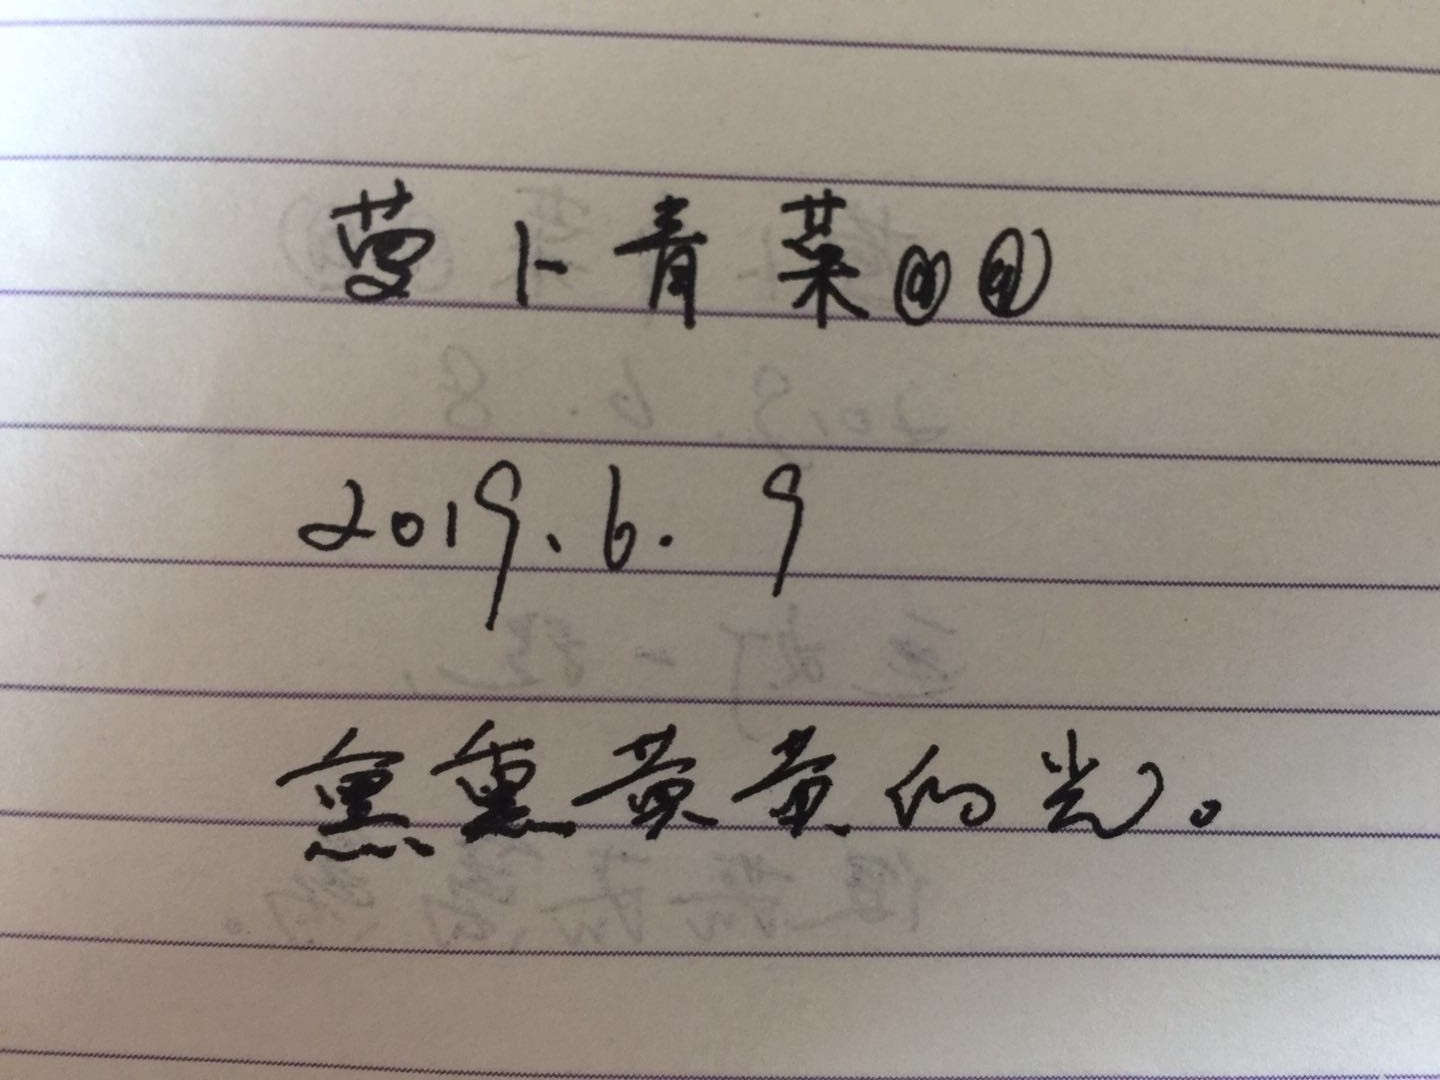 萝卜青菜@@
2019.6.9
熏熏黄黄的光。